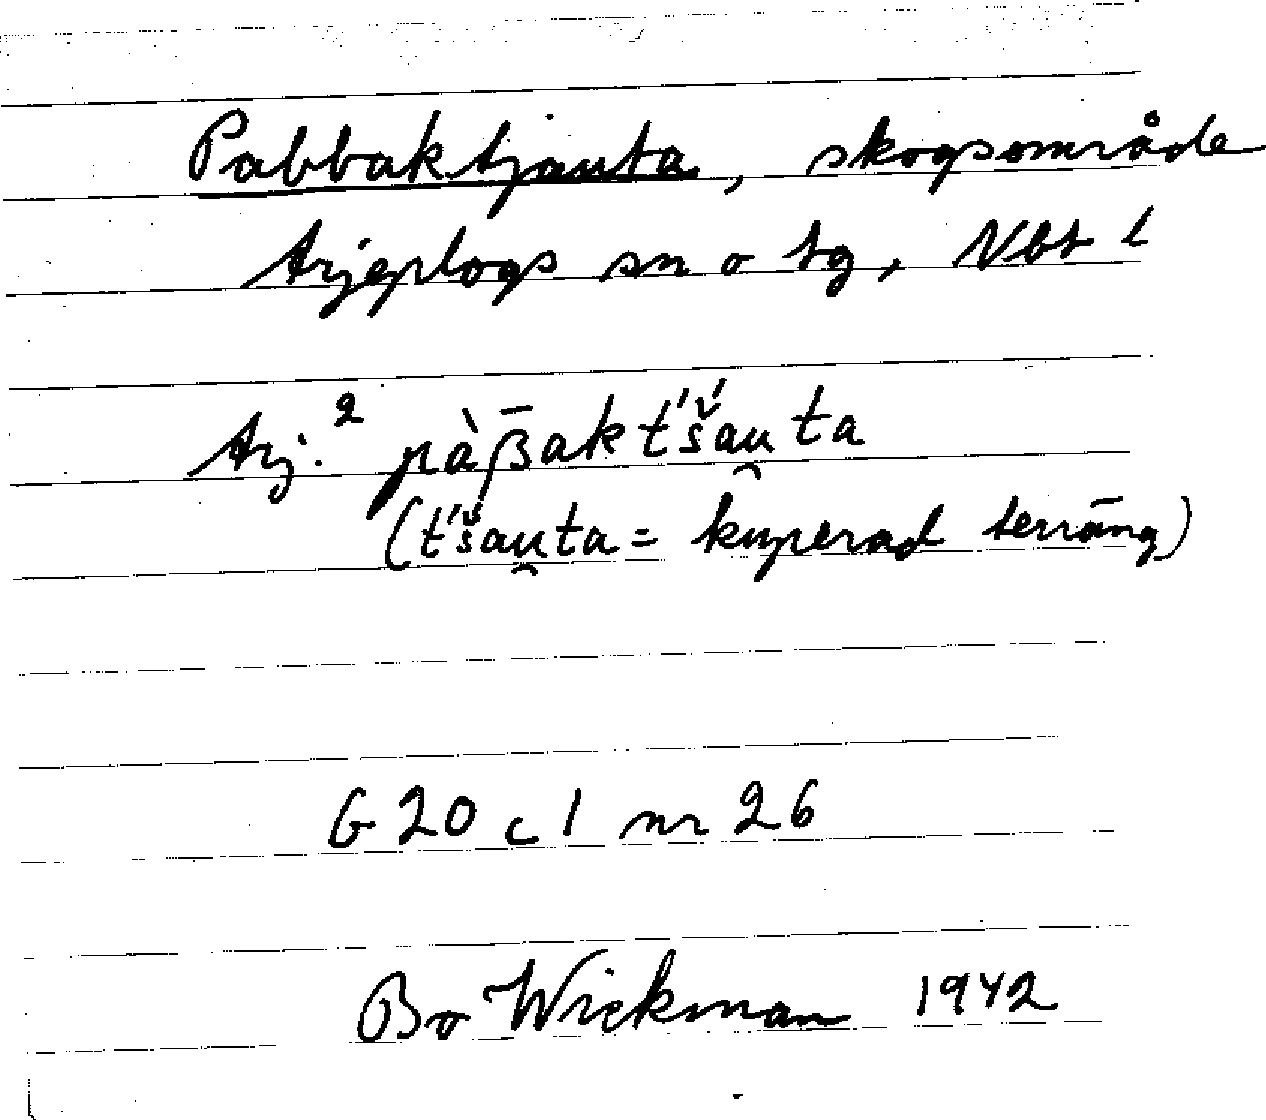 Pabbaktjauta, skogsområde
Arjeplogs sn o tg, Nbt l
Arj.² pàβ̄akt'š́au̯ta
(t'šau̯ta = kuperad terräng)
G 20 c 1 nr 26
Bo Wickman 1942